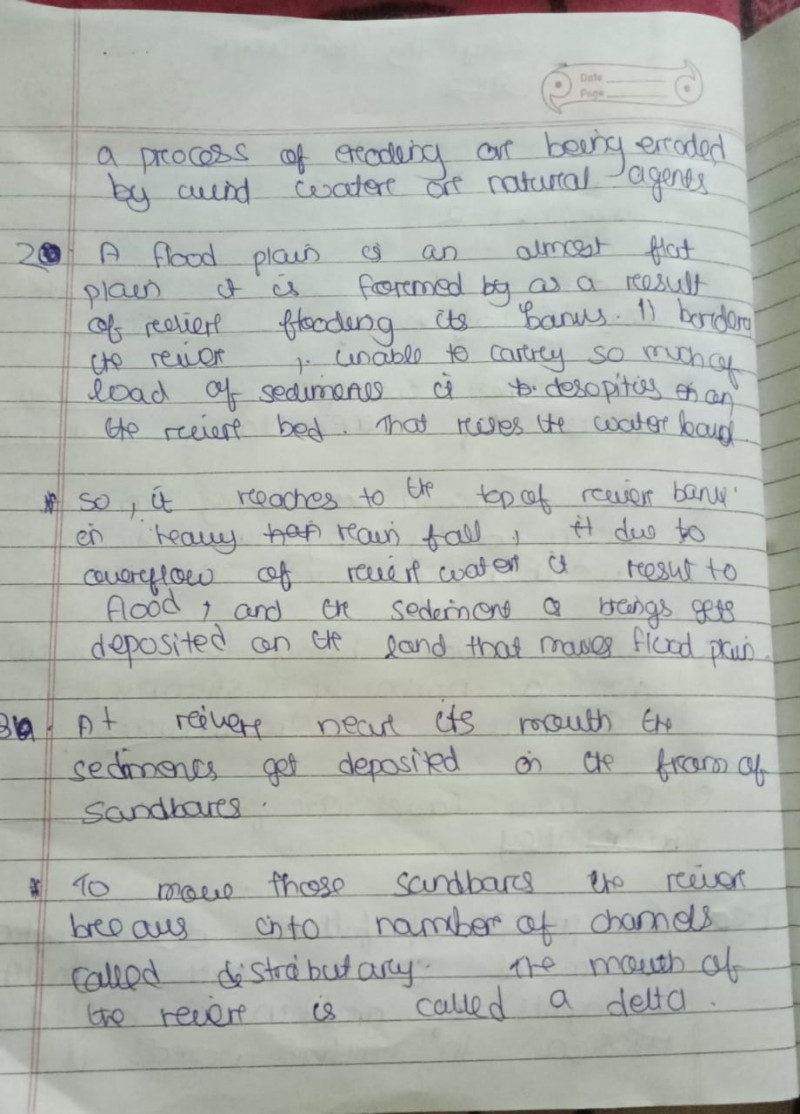 Date
Page
a process of eroding or being erroded
by wind water or natural agents
2. A flood plain is an almost flat
plain it is foremed by as a result
of reivere flooding its banks. It borders
the reiver, unable to carrey so much of
load of sediments is desopities on
the reivere bed. That rises the water
* So, it reaches to the top of reiver bank.
in heavy rean fall, it due to
overeflow of reivere water is resut to
flood, and the sedement brings gets
deposited on the land that makes flood plain.
3 At reivere near its mouth the
sediments get deposited in the from of
sandbares.
* To move those sandbars the reiver
breeaks into number of channels
called distributary. The mouth of
the reivere is called a delta.